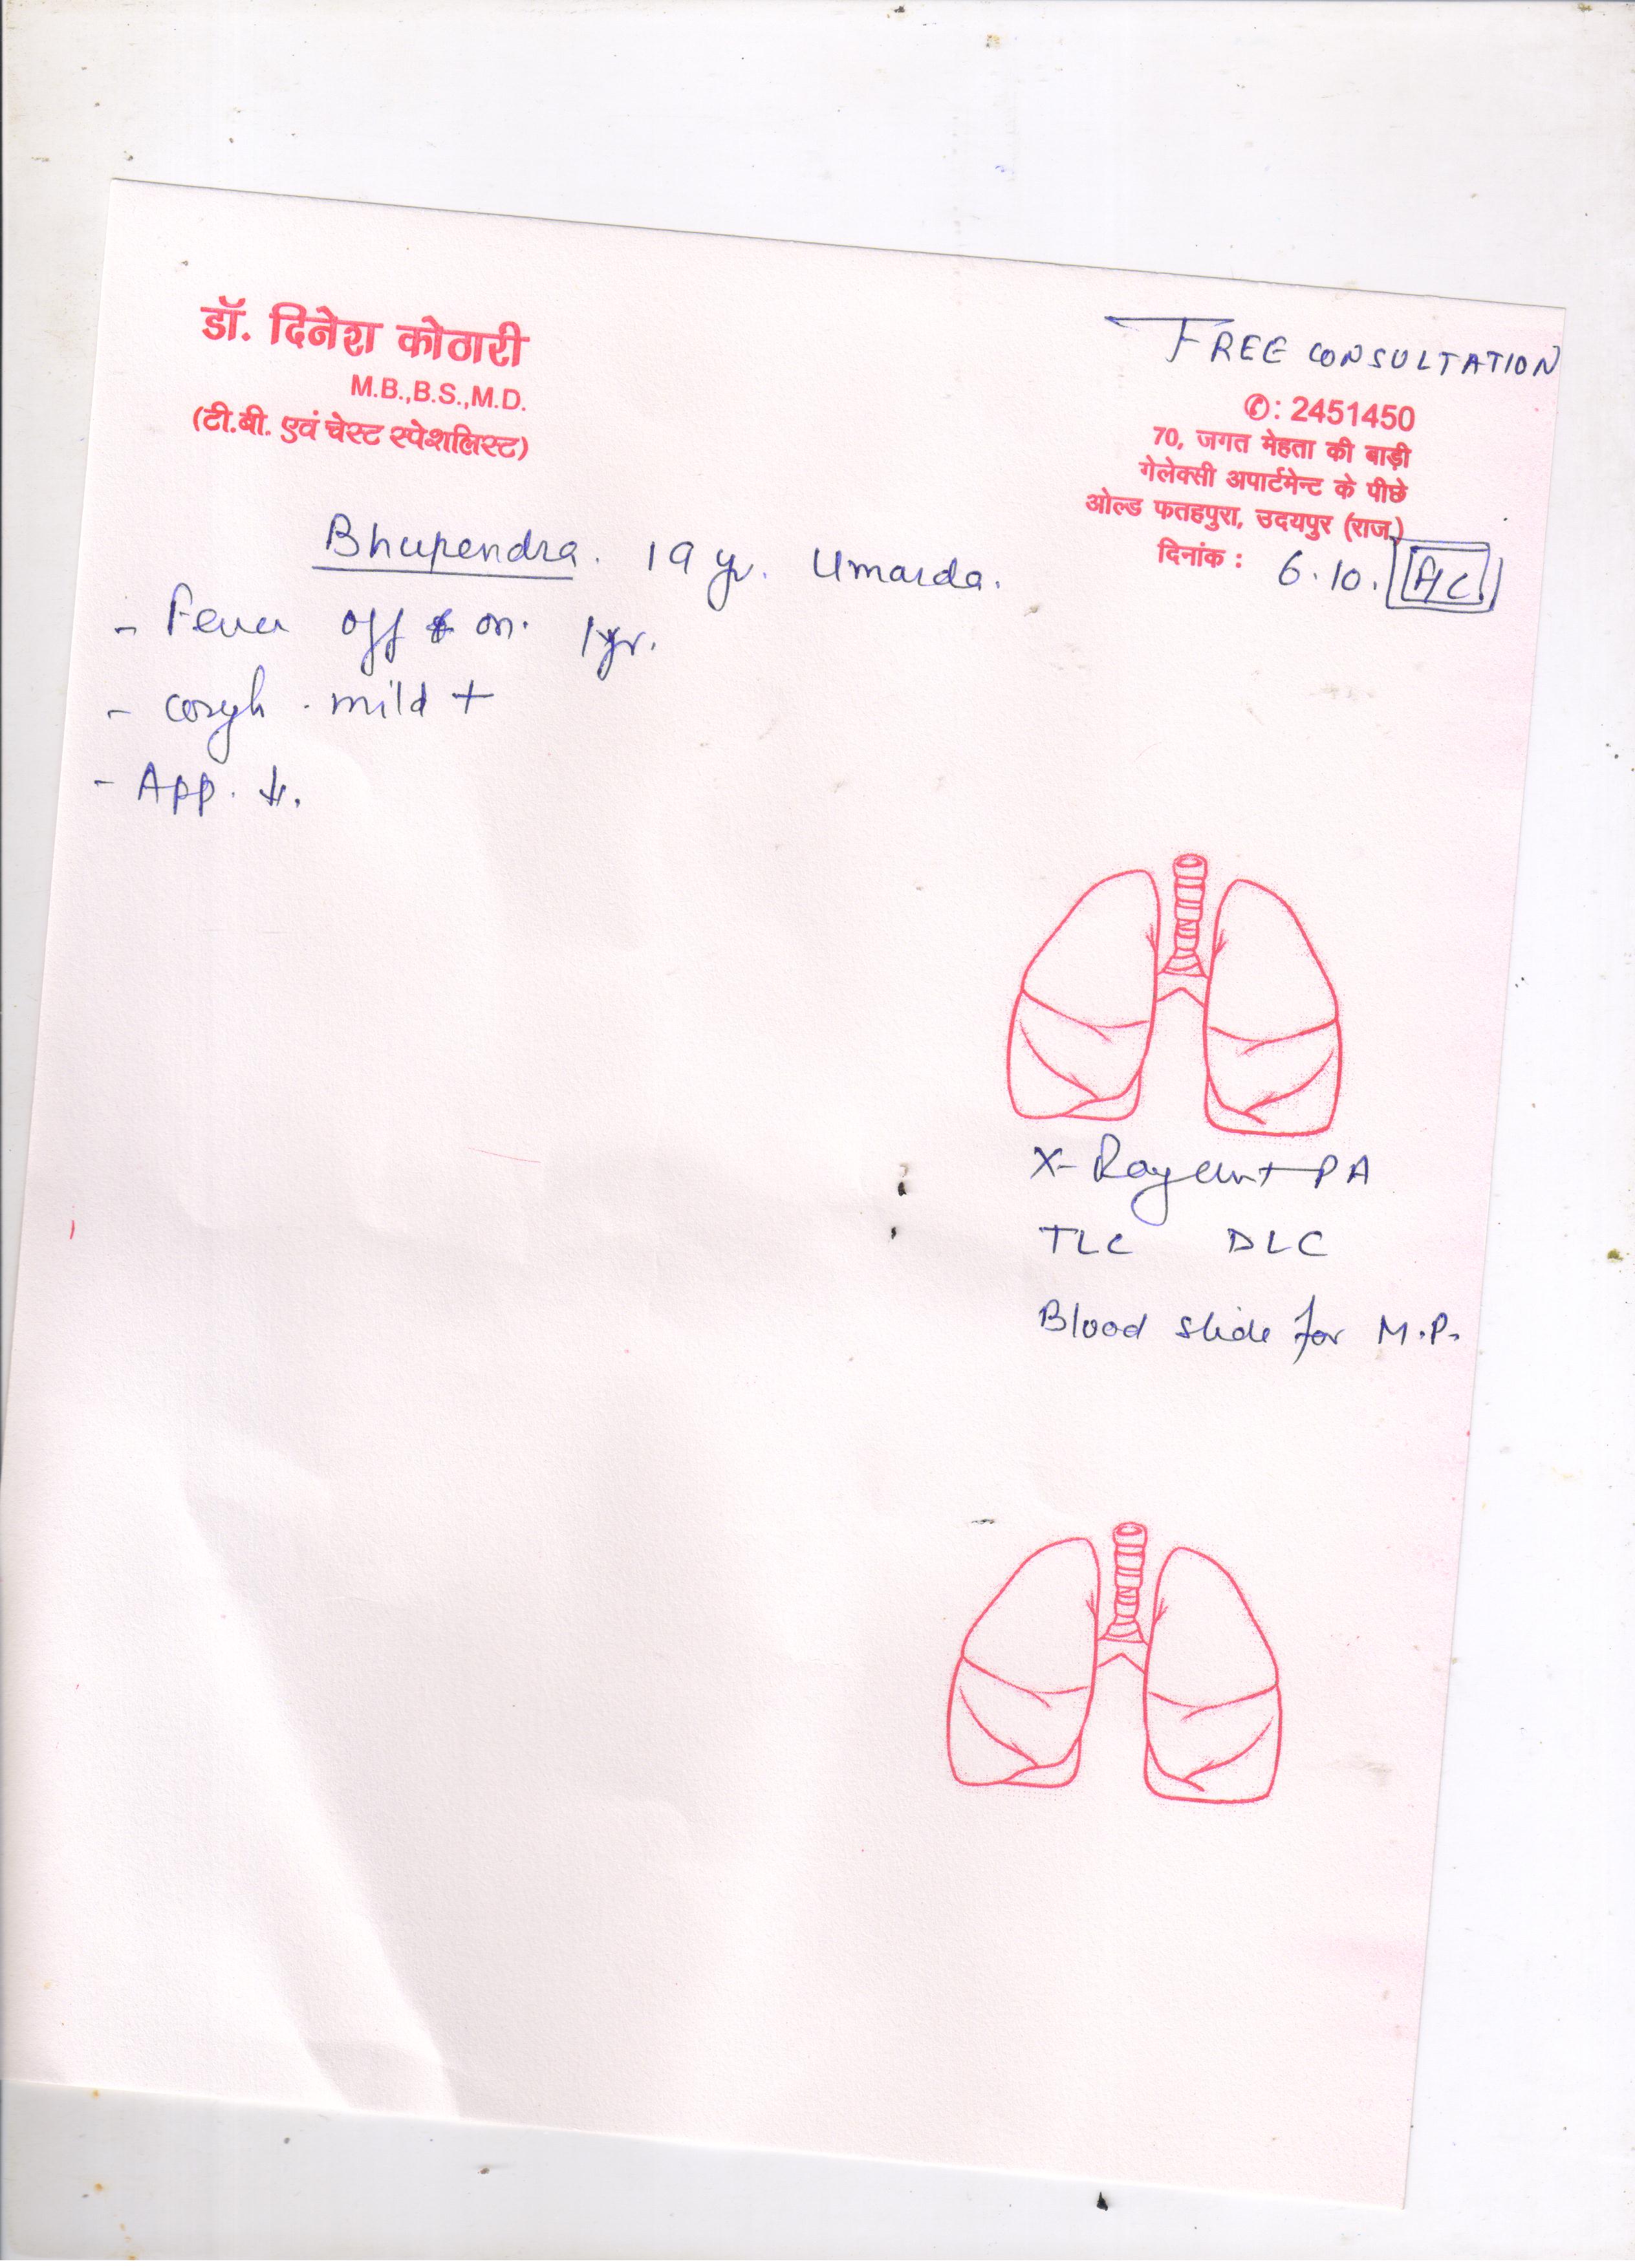 डॉ. दिनेश कोठारी
M.B.,B.S.,M.D.
(टी.बी. एवं चेस्ट स्पेशलिस्ट)
FREE CONSULTATION
✆: 2451450
70, जगत मेहता की बाड़ी
गेलेक्सी अपार्टमेन्ट के पीछे
ओल्ड फतहपुरा, उदयपुर (राज.)
दिनांक : 6.10.
Bhupendra. 19 yr. Umarda.
- Fever off & on. 1yr.
- cough . mild +
- App. ↓.
X-Ray PA
TLC DLC
Blood slide for M.P.